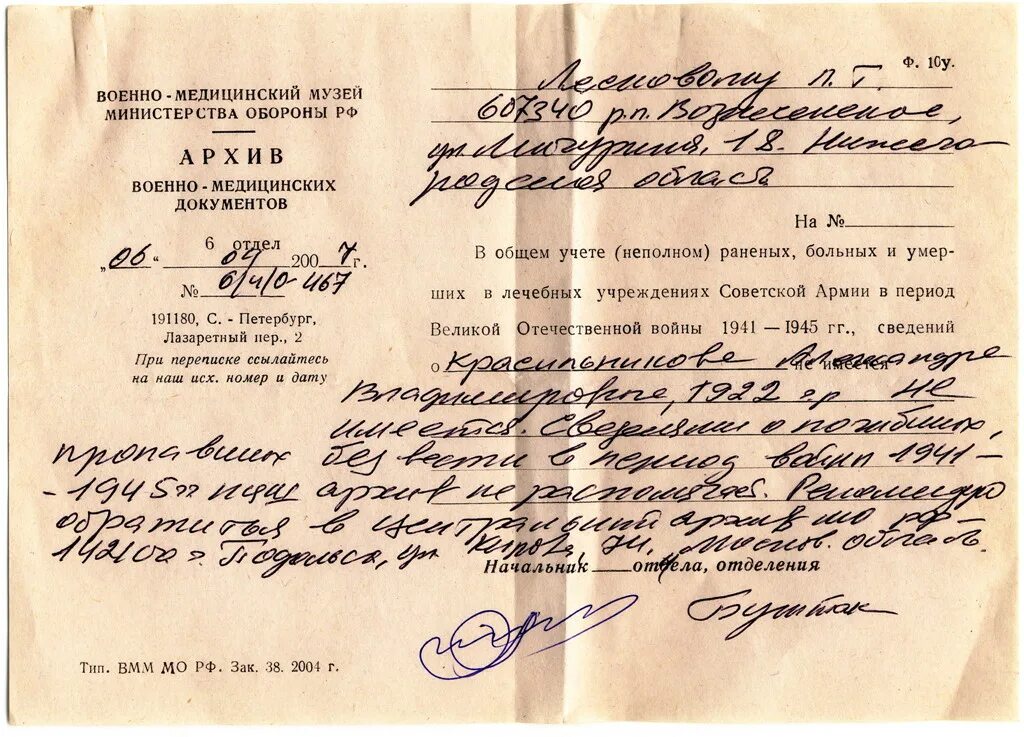 Ф. 10у.
ВОЕННО-МЕДИЦИНСКИЙ МУЗЕЙ
МИНИСТЕРСТВА ОБОРОНЫ РФ
АРХИВ
ВОЕННО-МЕДИЦИНСКИХ
ДОКУМЕНТОВ
6 отдел
„06“ 04 2007 г.
№ 6/4/0-467
191180, С. - Петербург,
Лазаретный пер., 2
При переписке ссылайтесь
на наш исх. номер и дату
Лесновому П. Г.
607340 р.п. Вознесенское,
ул. Мичурина, 18. Нижего
родская область
На №
В общем учете (неполном) раненых, больных и умер-
ших в лечебных учреждениях Советской Армии в период
Великой Отечественной войны 1941 — 1945 гг., сведений
о Красильникове Александре не имеется
Владимировиче, 1922 г.р. не
имеется. Сведениями о погибших,
пропавших без вести в период войны 1941-
-1945гг наш архив не располагает. Рекомендую
обратиться в Центральный архив МО РФ-
142100 г. Подольск, ул. Кирова, 74, Москов. область.
Начальник отдела, отделения
Буштак
Тип. ВММ МО РФ. Зак. 38. 2004 г.